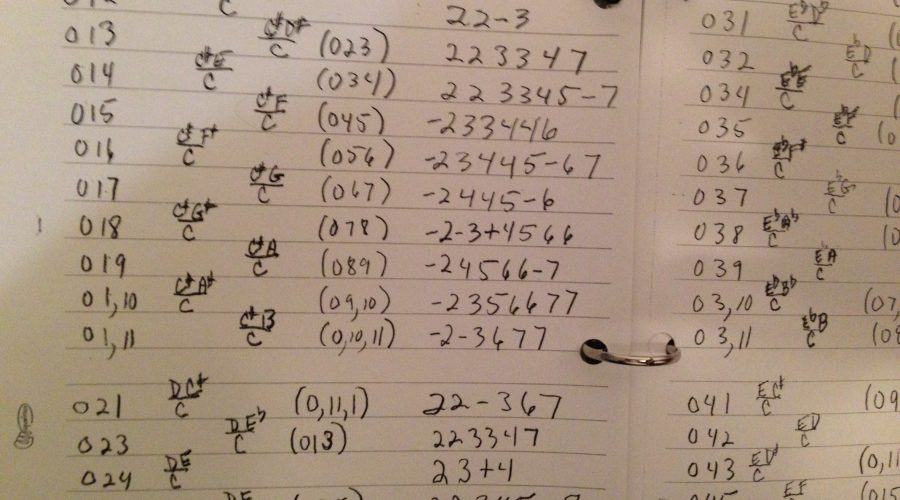 C 22-3
013 C#D#/C (023) 223347
014 C#E/C (034) 223345-7
015 C#E/C (045) -233446
016 C#F#/C (056) -23445-67
017 C#G/C (067) -2445-6
018 C#G#/C (078) -2-3+4566
019 C#A/C (089) -24566-7
01,10 C#A#/C (09,10) -2356677
01,11 C#B/C (0,10,11) -2-3677
021 DC#/C (0,11,1) 22-367
023 DEb/C (013) 223347
024 DE/C 23+4
DE
031
032 EbD/C
034 EbE/C
035 EbF/C (0
036 EbF#/C
037 EbG/C (0
038 EbAb/C (0
039 EA/C
03,10 EbBb/C (07,
03,11 EbB/C (0
041 EC#/C (09
042 ED/C
043 ED#/C (0,11
EF (015